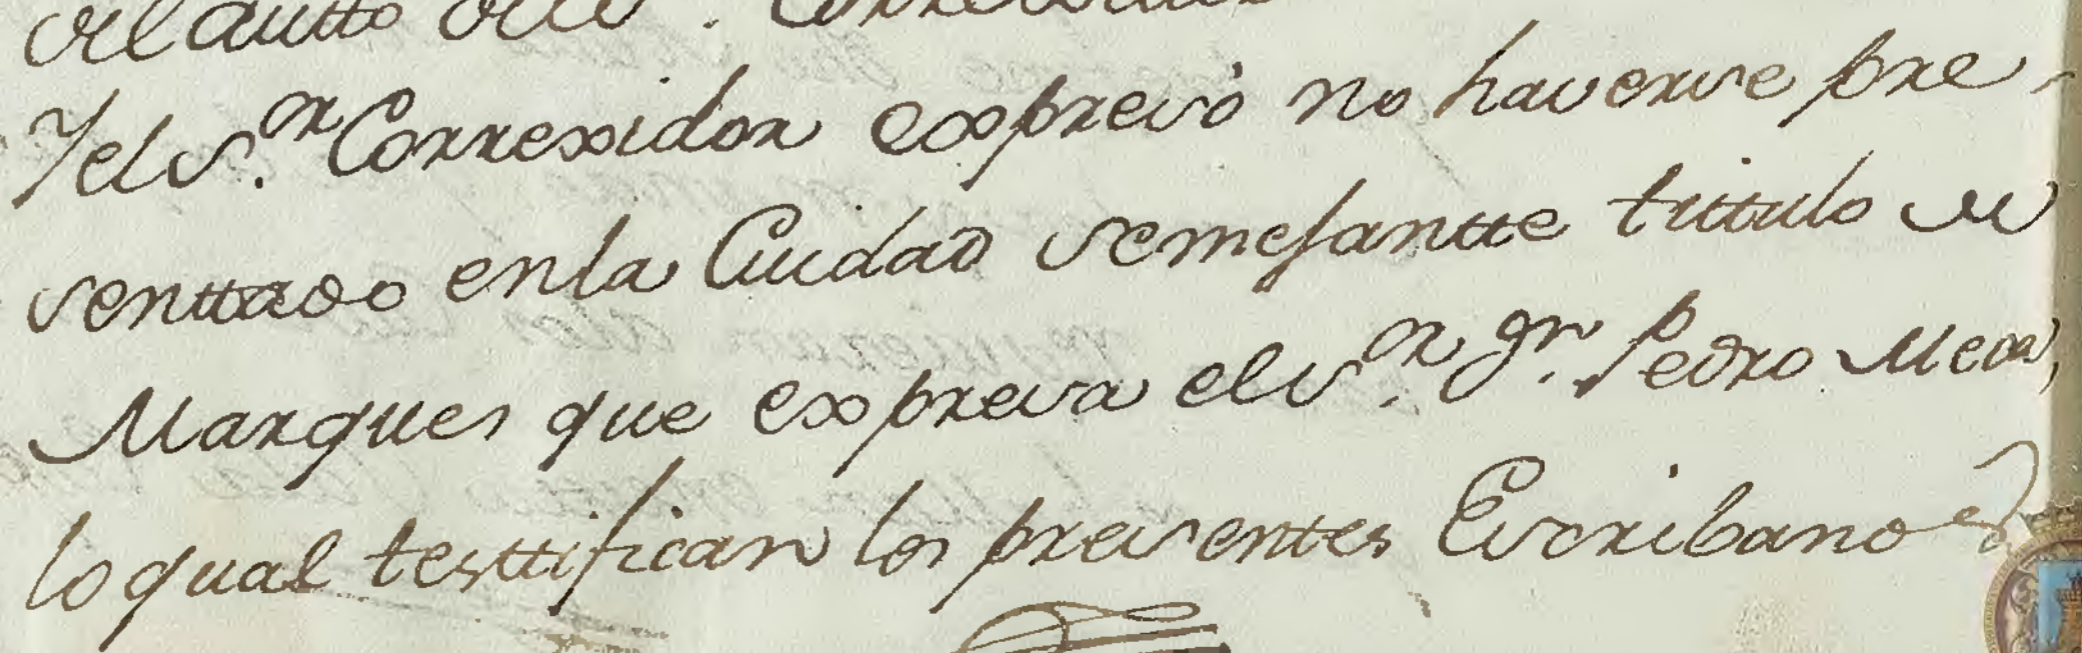 del autto del s.r Correxidor
Y el s.r Correxidor expresó no haverse pre,
senttado en la Ciudad semejantte tittulo de
Marques que expresa el s.r D.n Pedro Mesa,
lo qual testtifican los presenttes Escribanos